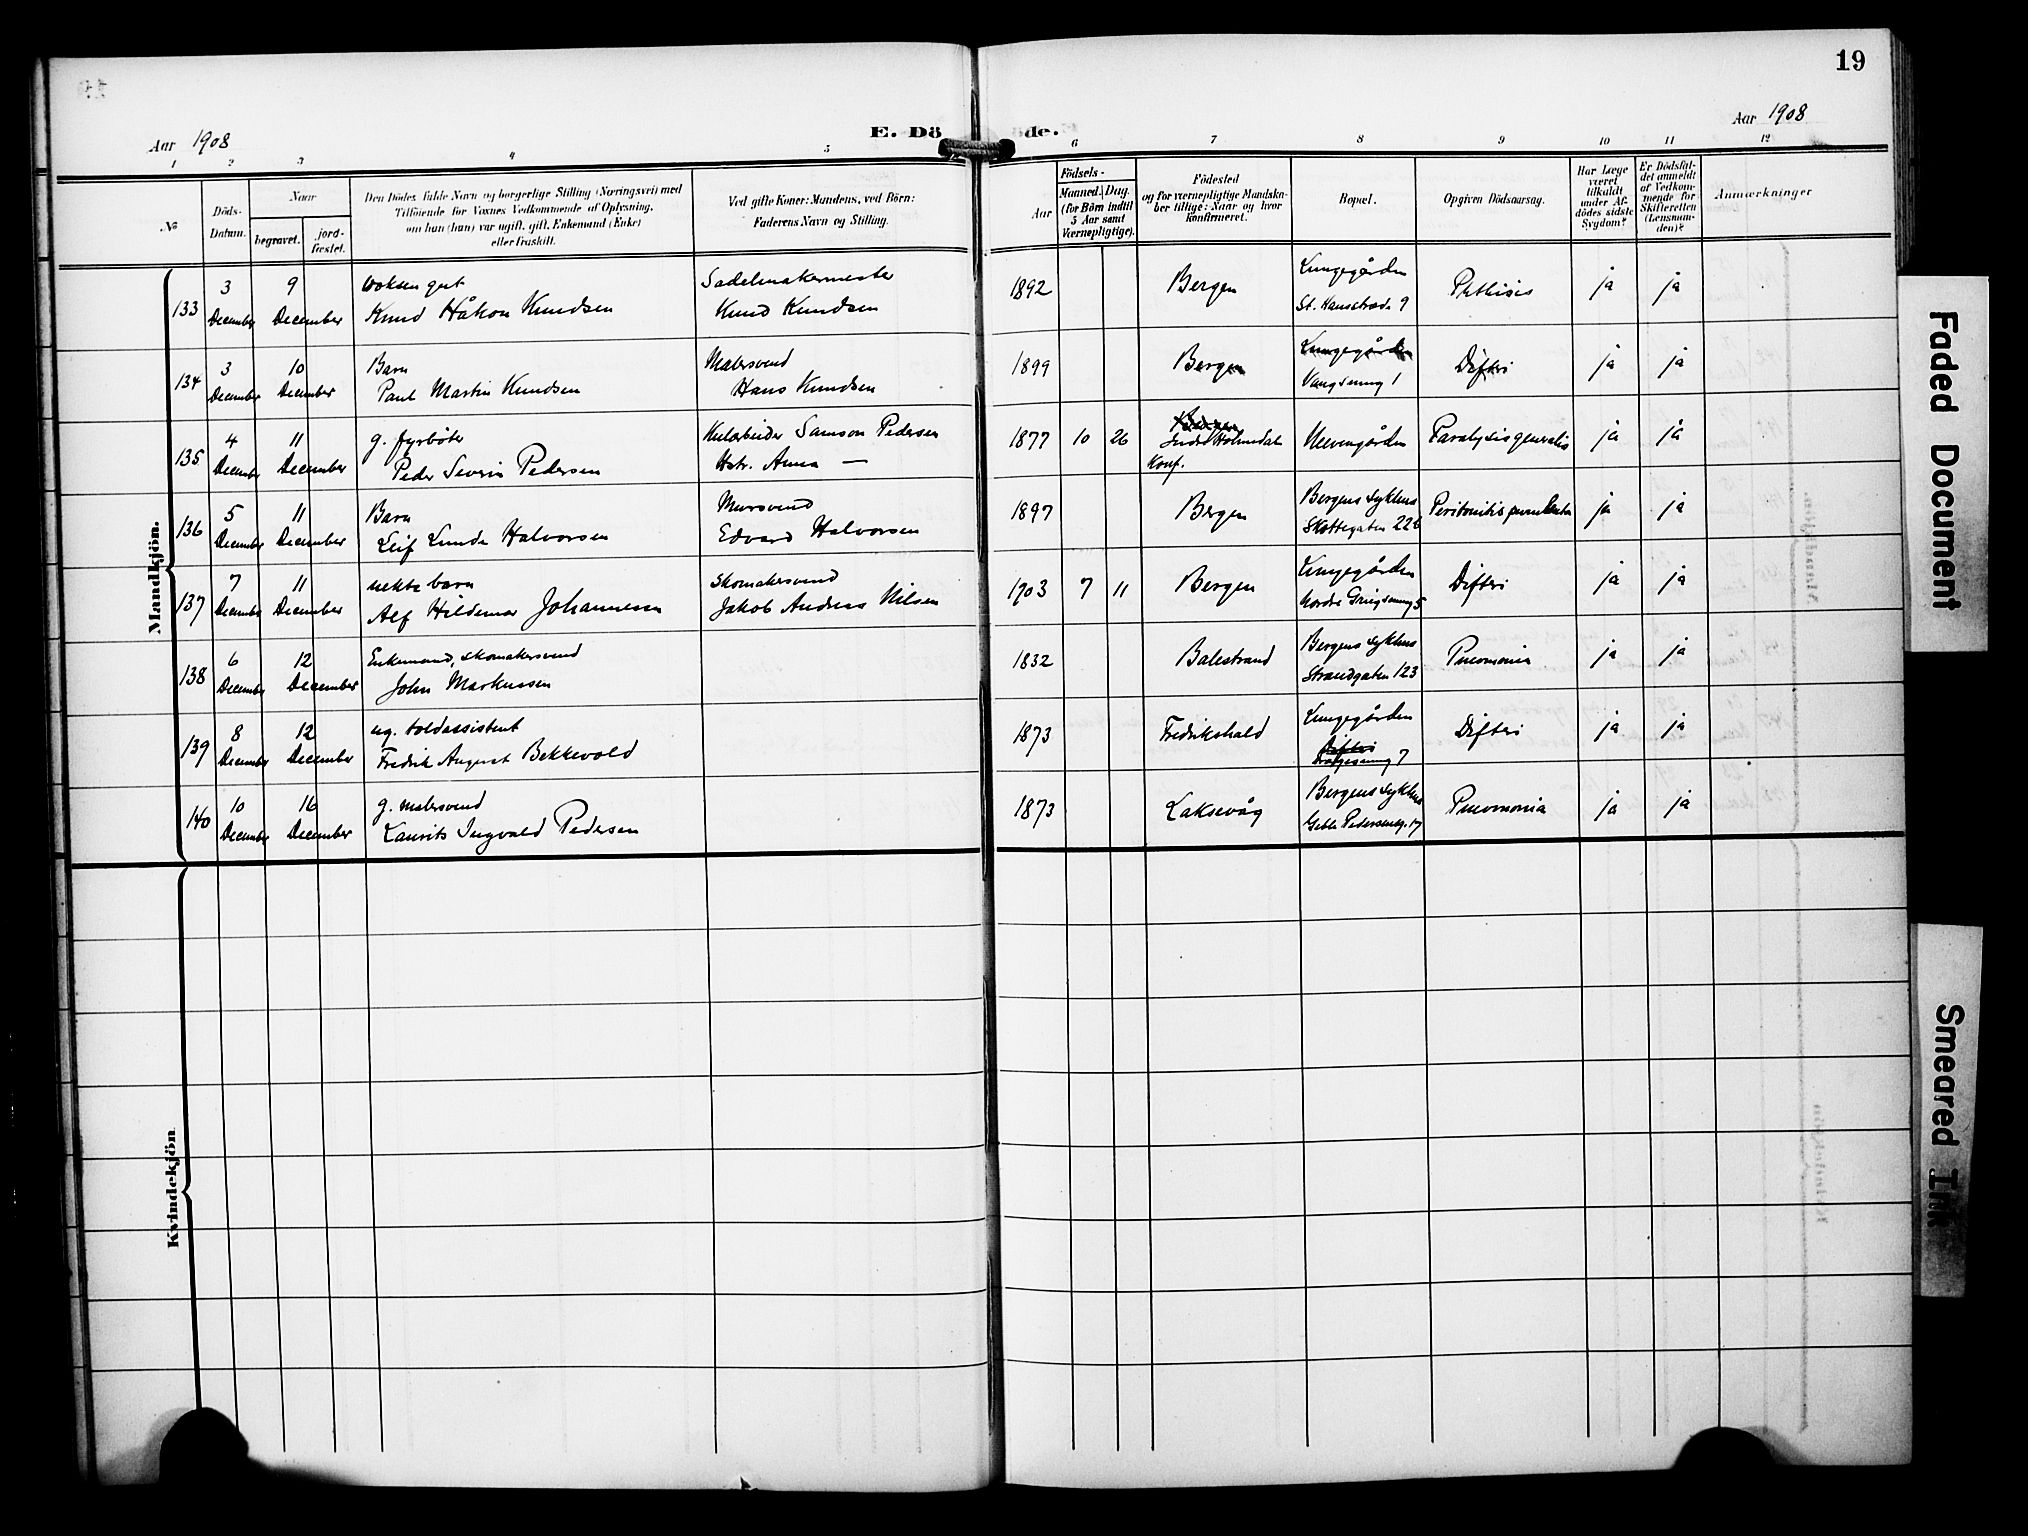 19
Aar 1908
E. Döde.
Aar 1908
1 2 3 4 5 6 7 8 9 10 11 12
№
Döds-Datum.
Naar
begravet.
jord-fæstet.
Den Dödes fulde Navn og borgerlige Stilling (Næringsvei) med
Tilföiende for Voxnes Vedkommende af Oplysning,
om han (hun) var ugift, gift, Enkemand (Enke)
eller fraskilt.
Ved gifte Koner: Mandens, ved Börn:
Faderens Navn og Stilling.
Födsels-
Aar
Maaned. Dag.
(for Börn indtil
5 Aar samt
Værnepligtige).
Födested
og for værnepligtige Mandska-
ber tillige: Naar og hvor
konfirmeret.
Bopæl.
Opgiven Dödsaarsag.
Har Læge
været
tilkaldt
under Af-
dödes sidste
Sygdom?
Er Dödsfal-
det anmeldt
af Vedkom-
mende for
Skifteretten
(Lensman-
den)?
Anmærkninger
Mandkjön.
133 3 December 9 December voksen gut Knud Håkon Knudsen Sadelmakermester Knud Knudsen 1892 Bergen Lungegården St. Hansstræde 9 Phthisis ja ja
134 3 December 10 December Barn Paul Martin Knudsen Malersvend Hans Knudsen 1899 Bergen Lungegården 1 Difteri ja ja
135 4 December 11 December g. fyrbøter Peder Severin Pedersen Samson Pedersen Hstr. Anna — 1877 10 26 Bergen Indre Holmedal Konf. Neevengården Paralysis generalis ja ja
136 5 December 11 December Barn Leif Lunde Halvorsen Mursvend Edvard Halvorsen 1897 Bergen Bergens Sykhus Skottegaten 22 Peritonitis purulenta ja ja
137 7 December 11 December uekte barn Alf Hildemar Johannesen Skomakersvend Jakob Andreas Nilsen 1903 7 11 Bergen Lungegården Nordre 5 Difteri ja ja
138 6 December 12 December Enkemand, skomakersvend John Markussen 1832 Balestrand Bergens Sykhus Strandgaten 123 Pneumonia ja ja
139 8 December 12 December ug. toldassistent Fredrik August Bekkevold 1873 Fredrikshald Lungegården Difteri 7 Difteri ja ja
140 10 December 16 December g. malersvend Laurits Ingvald Pedersen 1873 Laksevåg Bergens Sykhus Geble Pedersensg. 17 Pneumonia ja ja
Kvindekjön
Faded Document
Smeared Ink